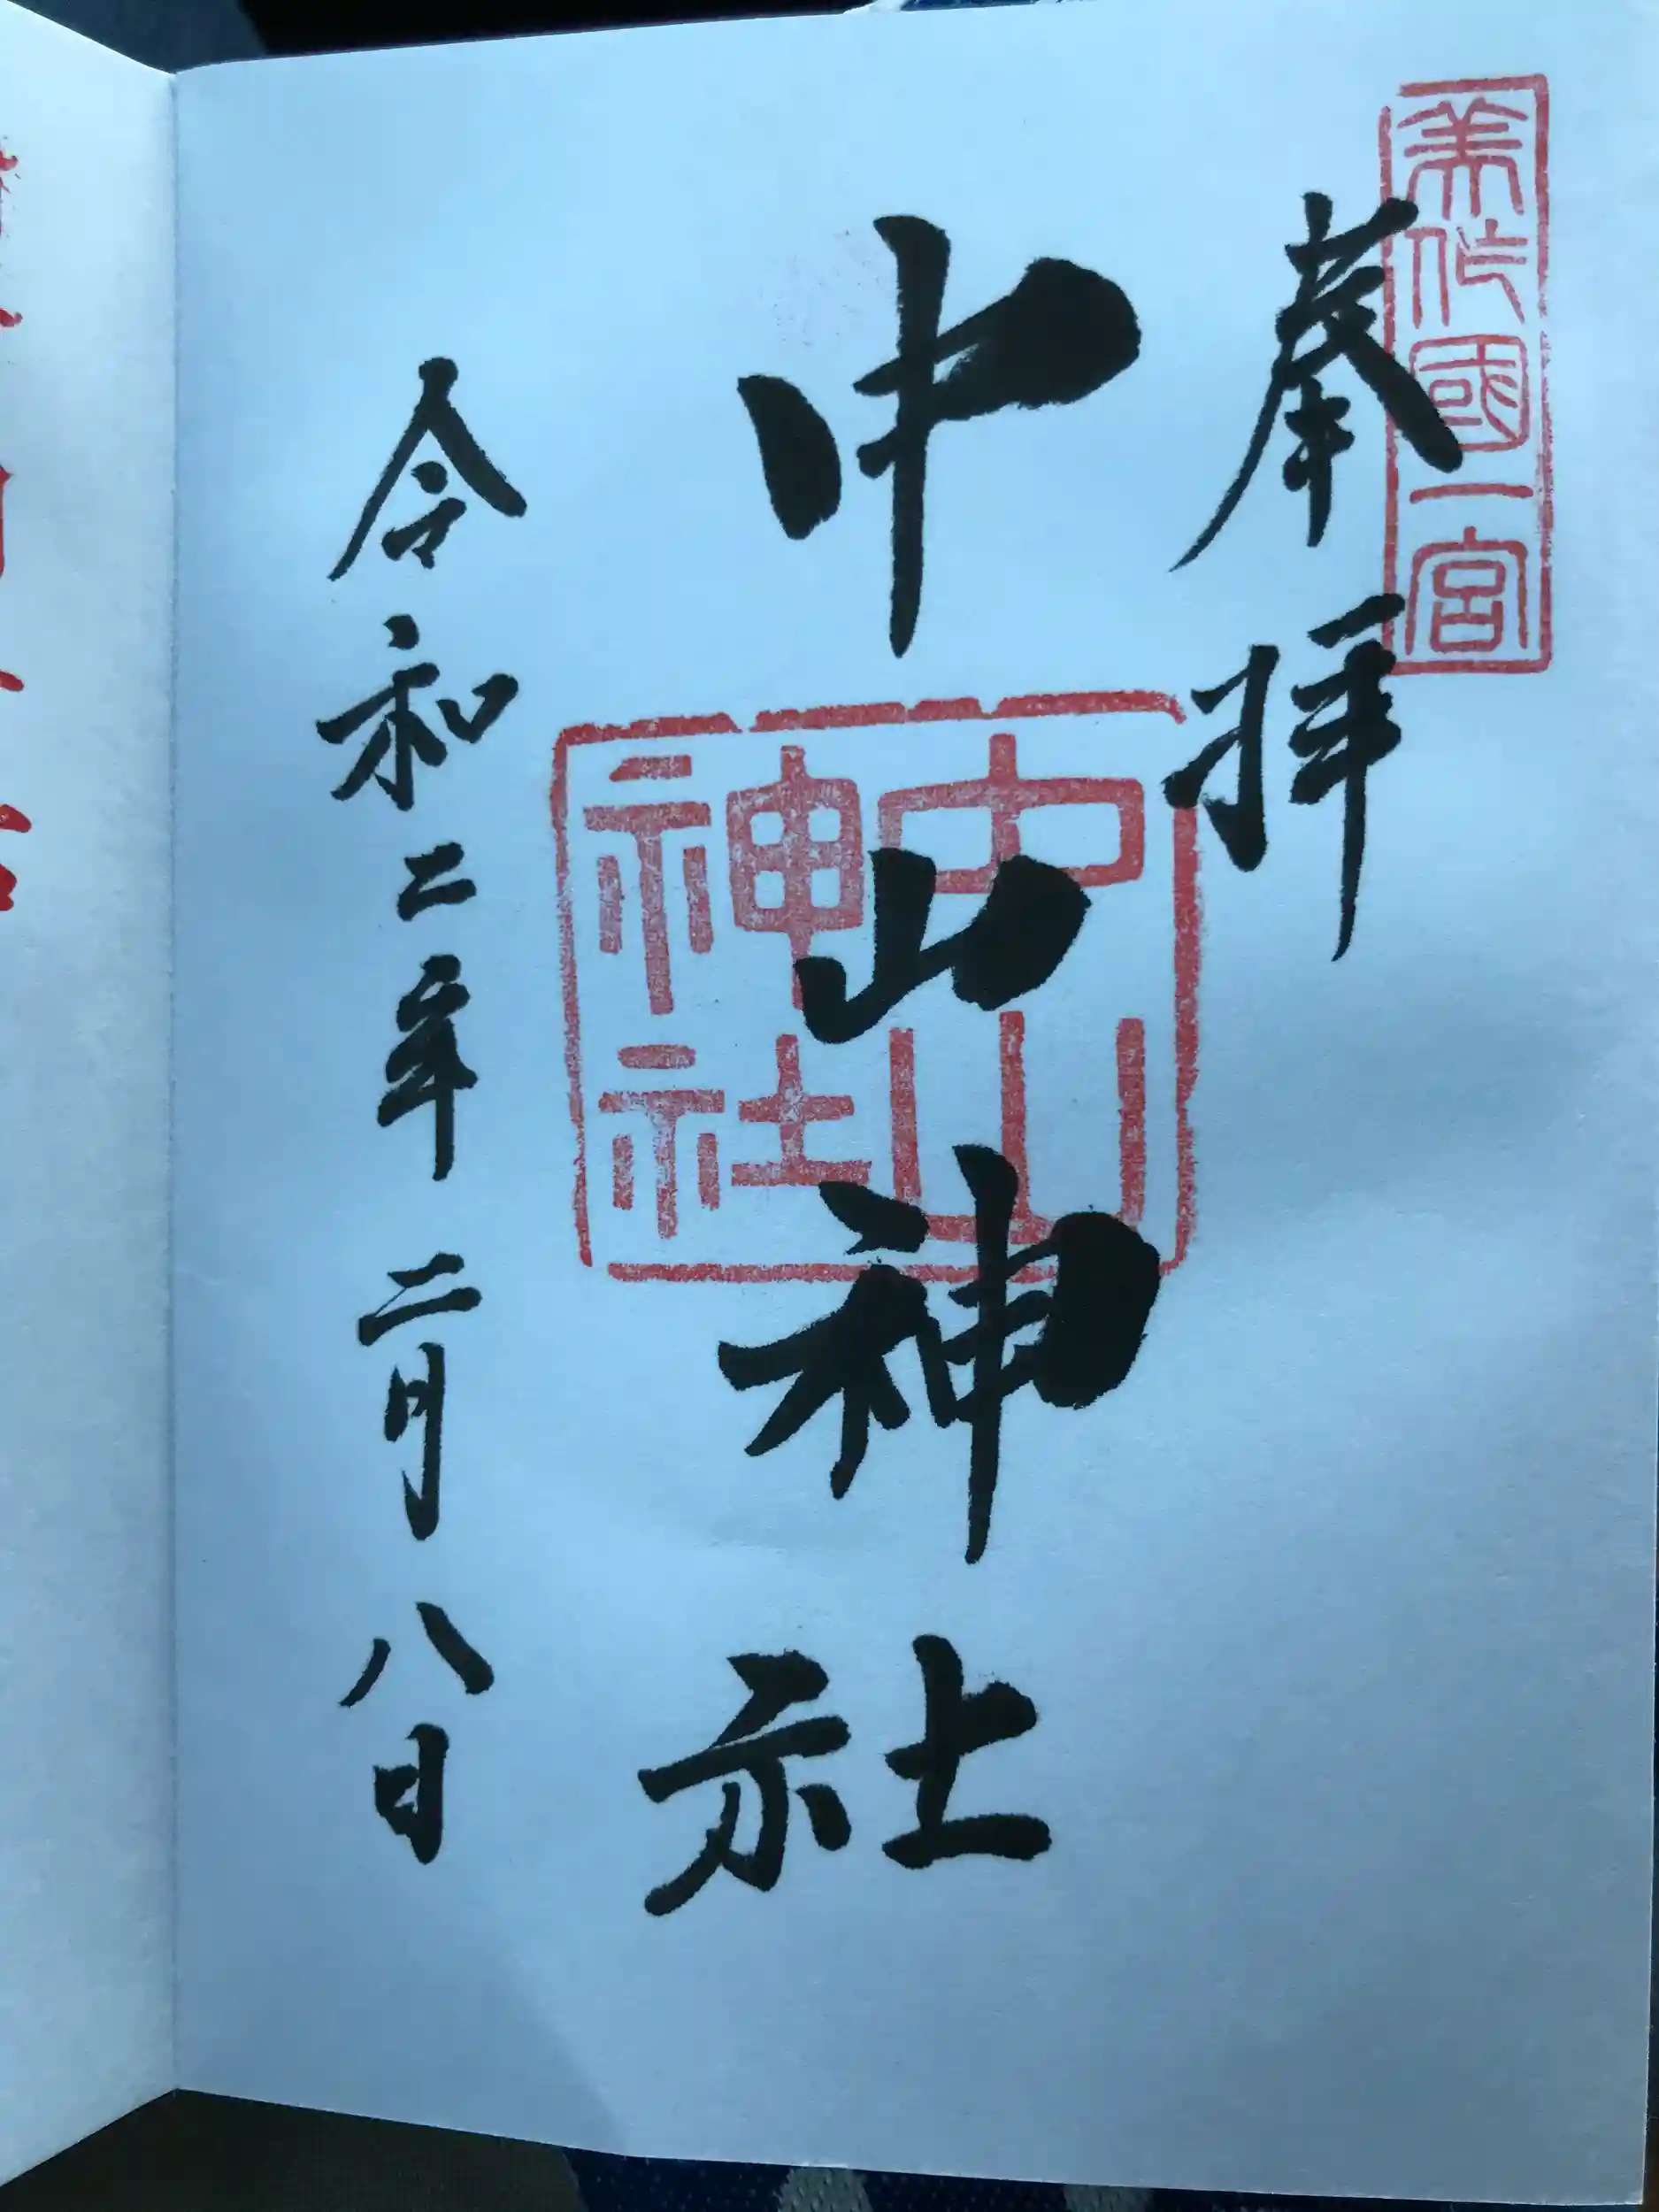 美作國一宮
奉拝
中山神社
中山
神社
令和二年二月八日